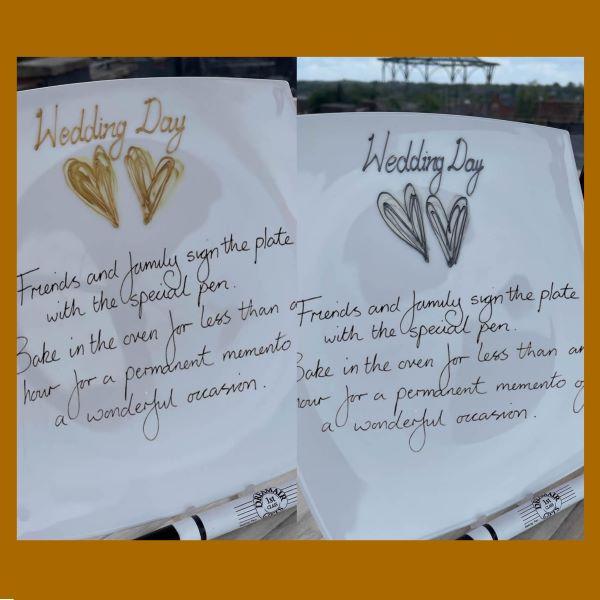 Wedding Day
Friends and family sign the plate
with the special pen.
Bake in the oven for less than a
hour for a permanent memento
a wonderful occasion.
DREAMAIR
1st
CLASS
GIFTS
Wedding Day
Friends and family sign the plate
with the special pen.
Bake in the oven for less than an
hour for a permanent memento of
a wonderful occasion.
DREAMAIR
1st
CLASS
GIFTS